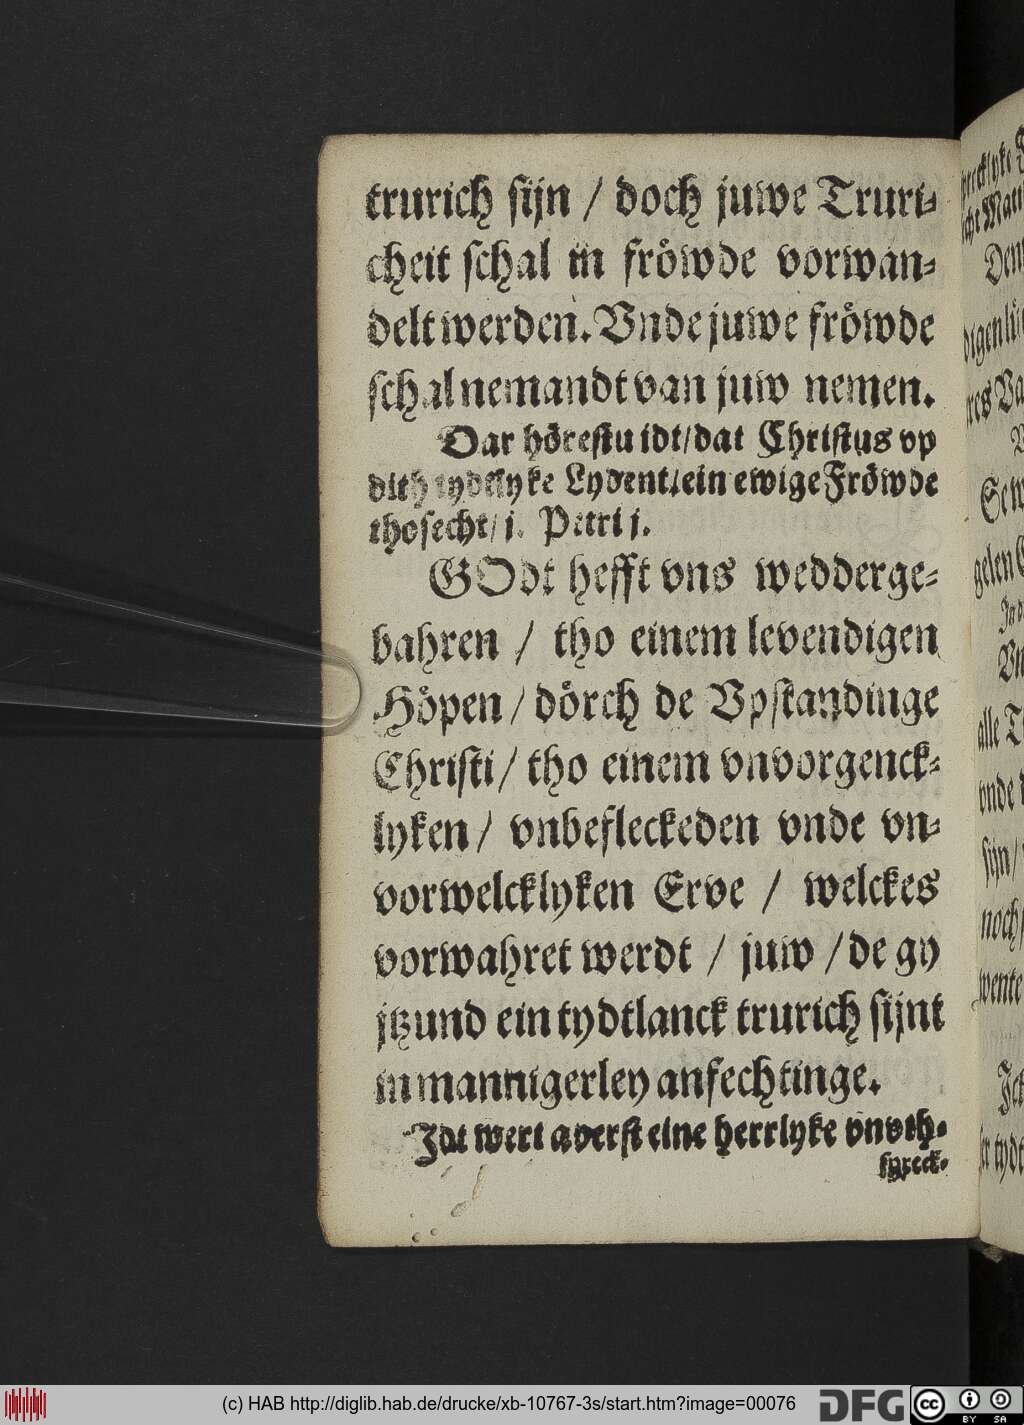 trurich sijn / doch juwe Truri-
cheit schal in fröwde vorwan-
delt werden. Vnde juwe fröwde
schal nemandt van juw nemen.
Dar hörestu idt / dat Christus vp
dith tydtlyke Lydent / ein ewige Fröwde
thosecht / j. Petri j.
GOdt hefft vns wedderge-
bahren / tho einem levendigen
Höpen / dörch de Vpstandinge
Christi / tho einem vnvorgenck-
lyken / vnbefleckeden vnde vn-
vorwelcklyken Erve / welckes
vorwahret werdt / juw / de gy
jtzund ein tydtlanck trurich sijnt
in mannigerley anfechtinge.
Idt wert averst eine herrlyke vnvth-
spreck-
(c) HAB http://diglib.hab.de/drucke/xb-10767-3s/start.htm?image=00076
DFG
cc BY SA